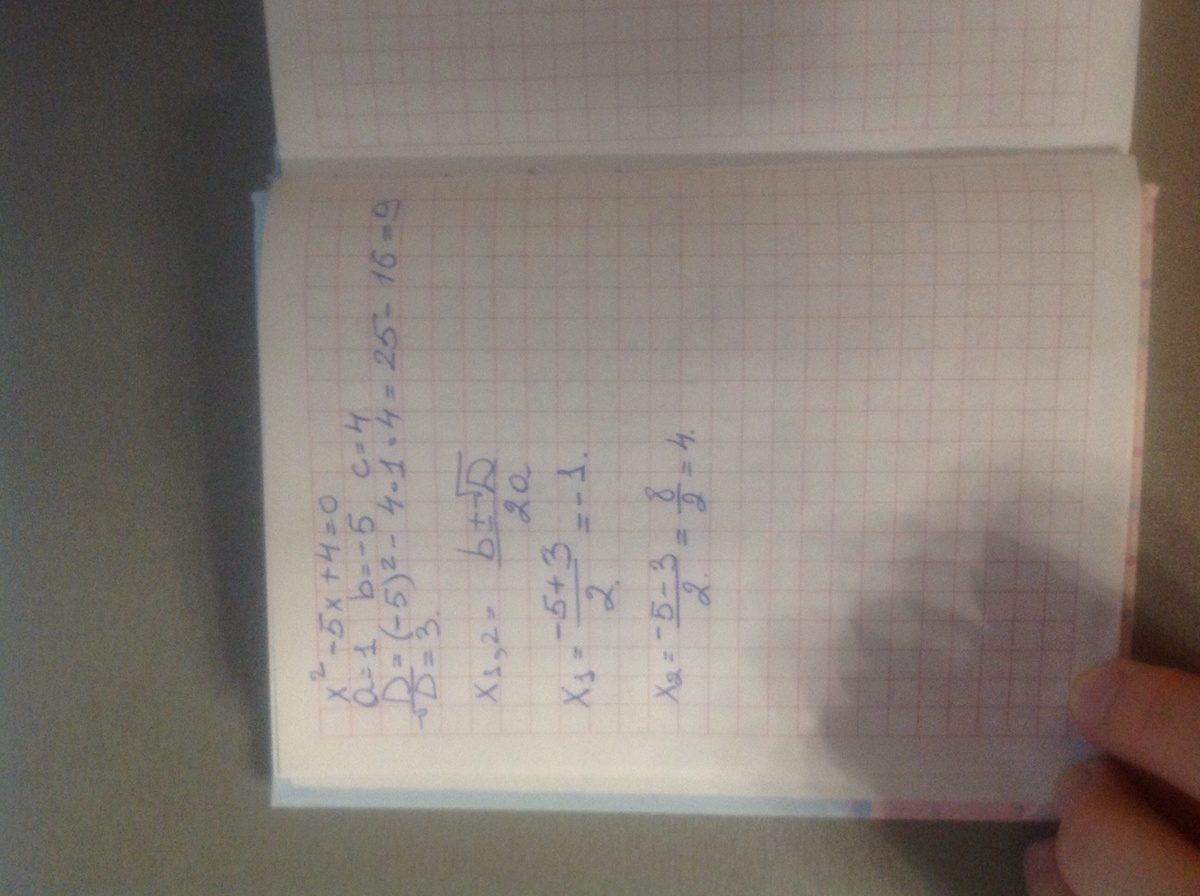 x² - 5x + 4 = 0
a = 1 b = -5 c = 4
D = (-5)² - 4·1·4 = 25 - 16 = 9
√D = 3.
x₁,₂ = (b ± √D) / 2a
x₁ = (-5 + 3) / 2 = -1.
x₂ = (-5 - 3) / 2 = 8/2 = 4.